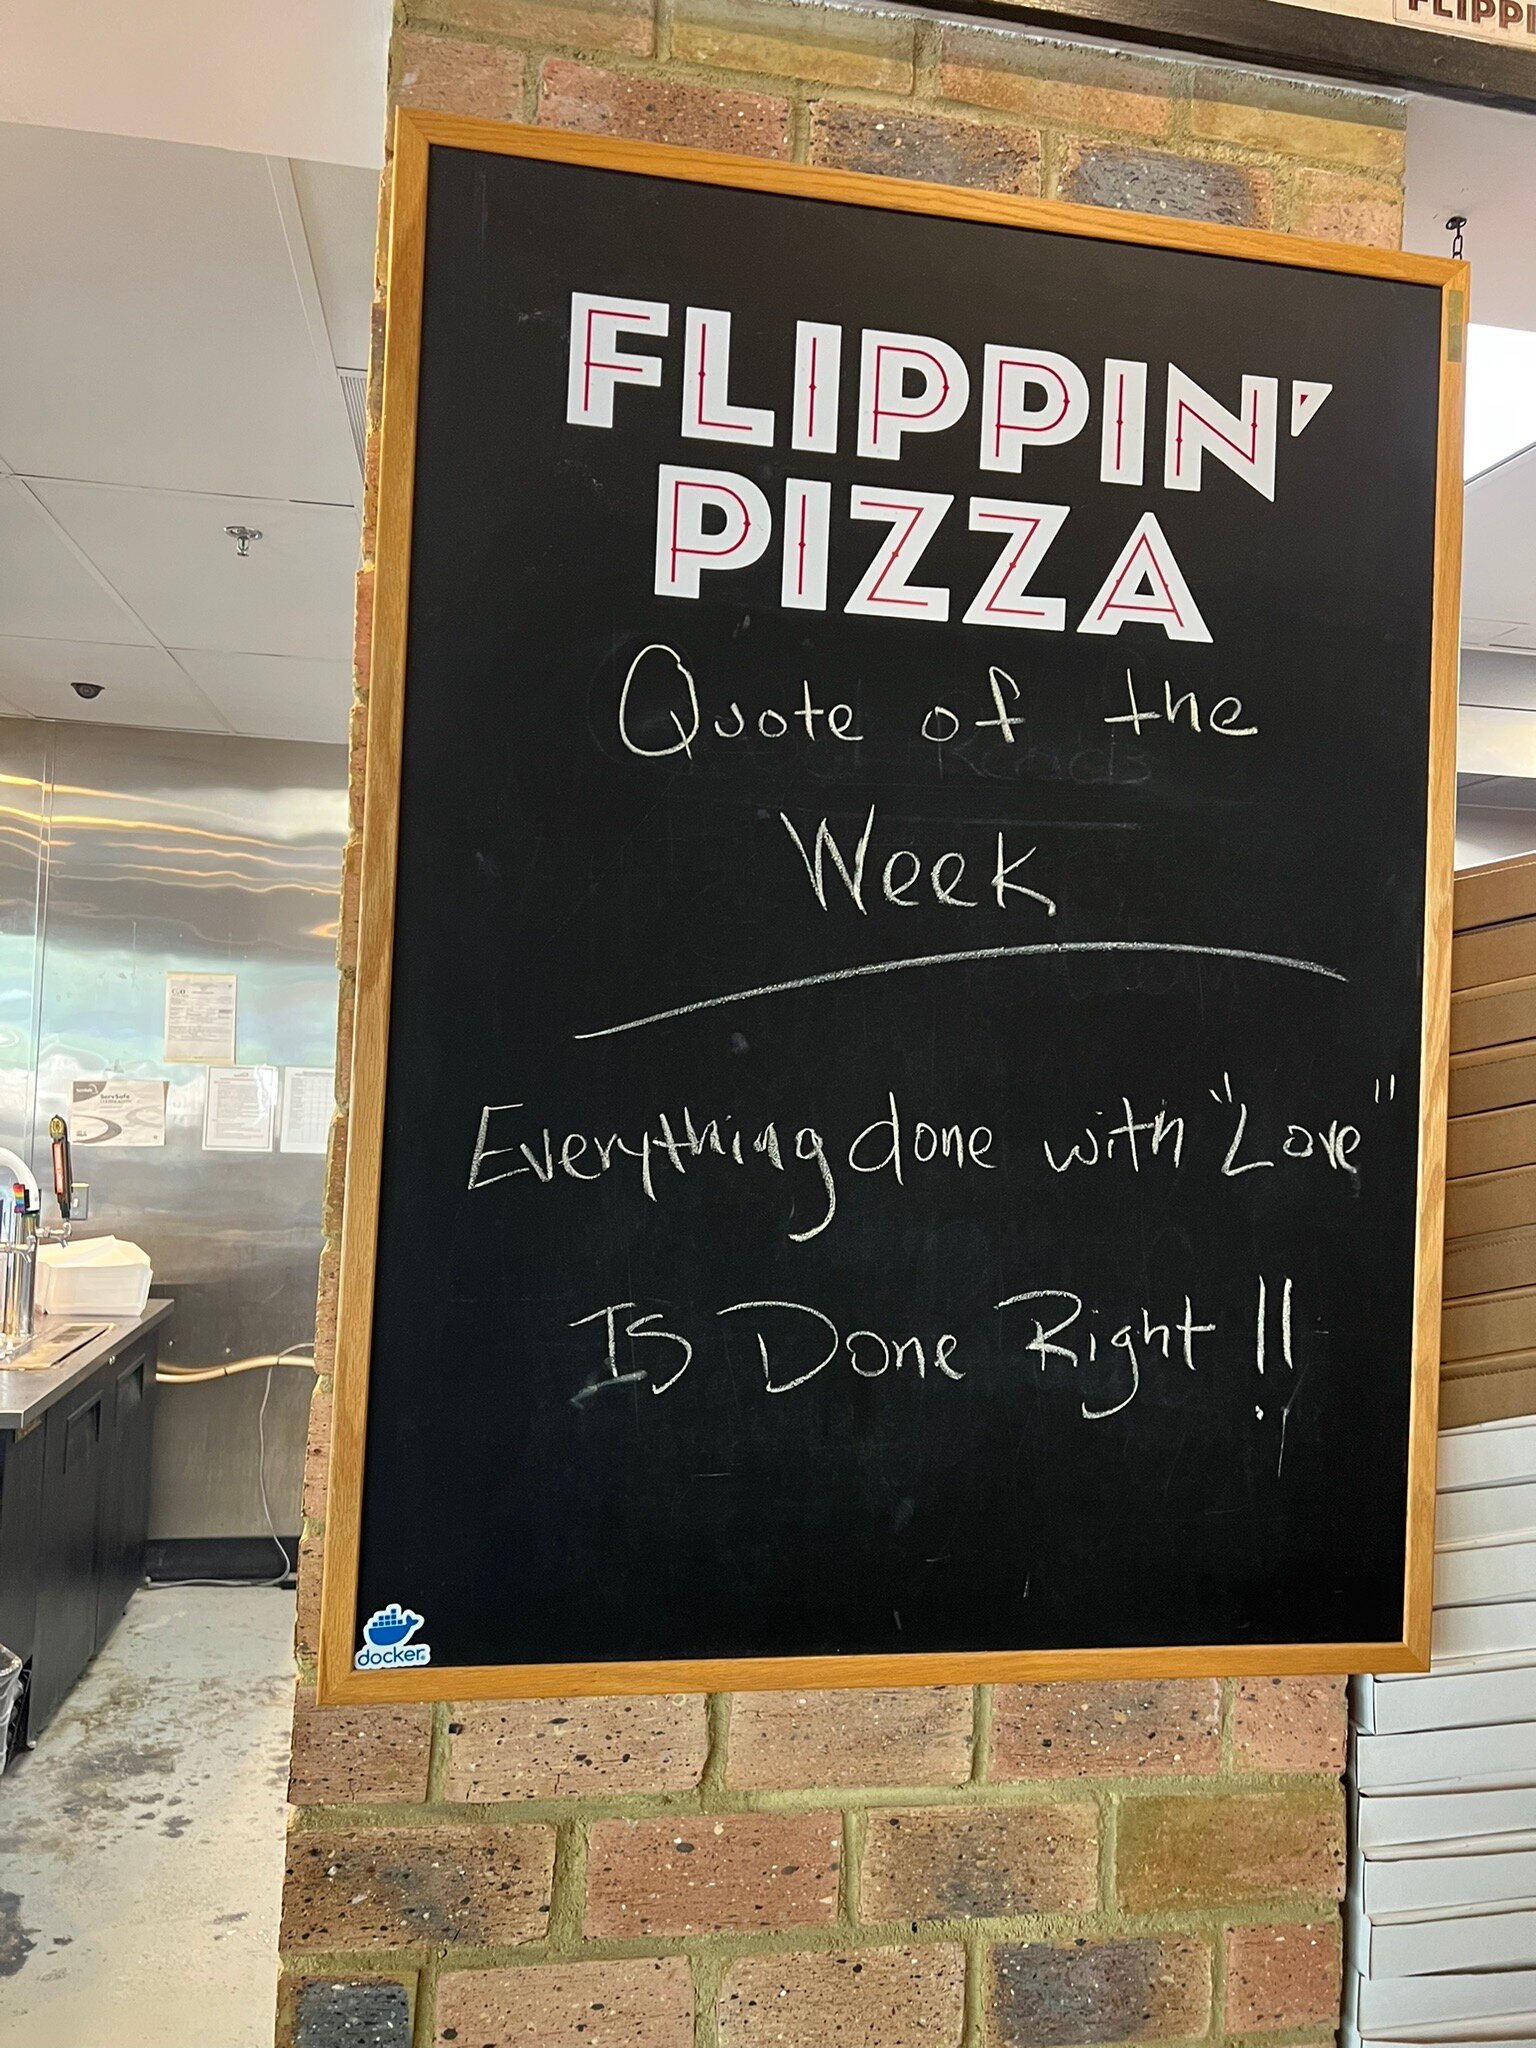 FLIPPI
FLIPPIN'
PIZZA
Quote of the
Week
Everything done with "Love"
Is Done Right!!
ServSafe
docker